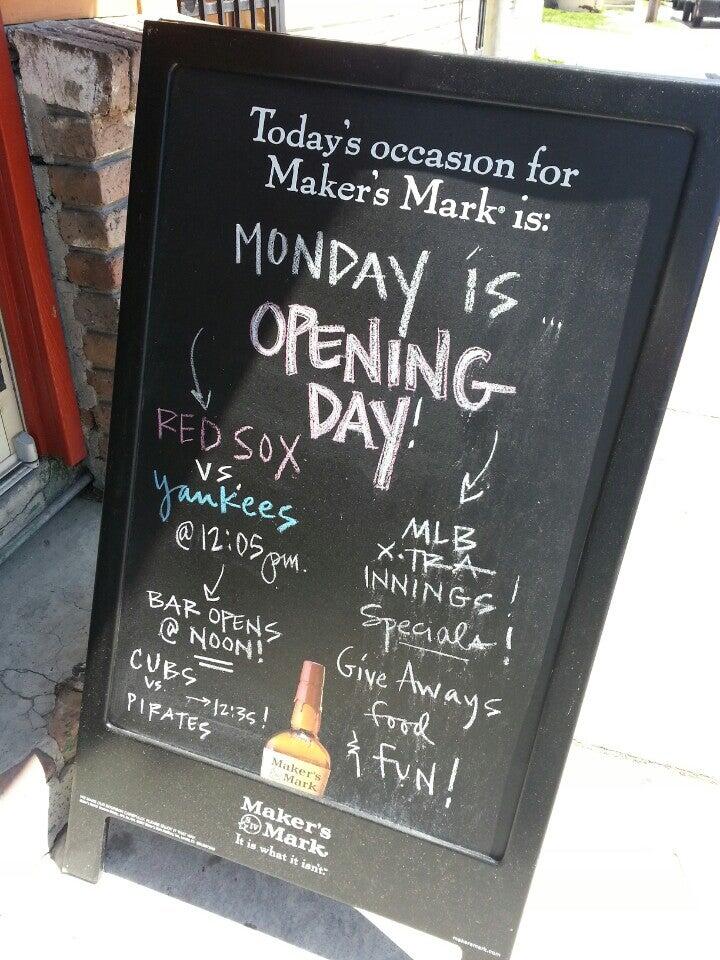 Today's occasion for
Maker's Mark® is:
MONDAY is ...
OPENING
DAY!
RED SOX
VS.
Yankees
@ 12:05 pm.
BAR OPENS
@ NOON!
CUBS
VS. → 12:35!
PIRATES
MLB
X-TRA
INNINGS!
Specials!
Give Aways
food
& FUN!
Maker's
Mark
Maker's
SIV
Mark
It is what it isn't.™
makersmark.com